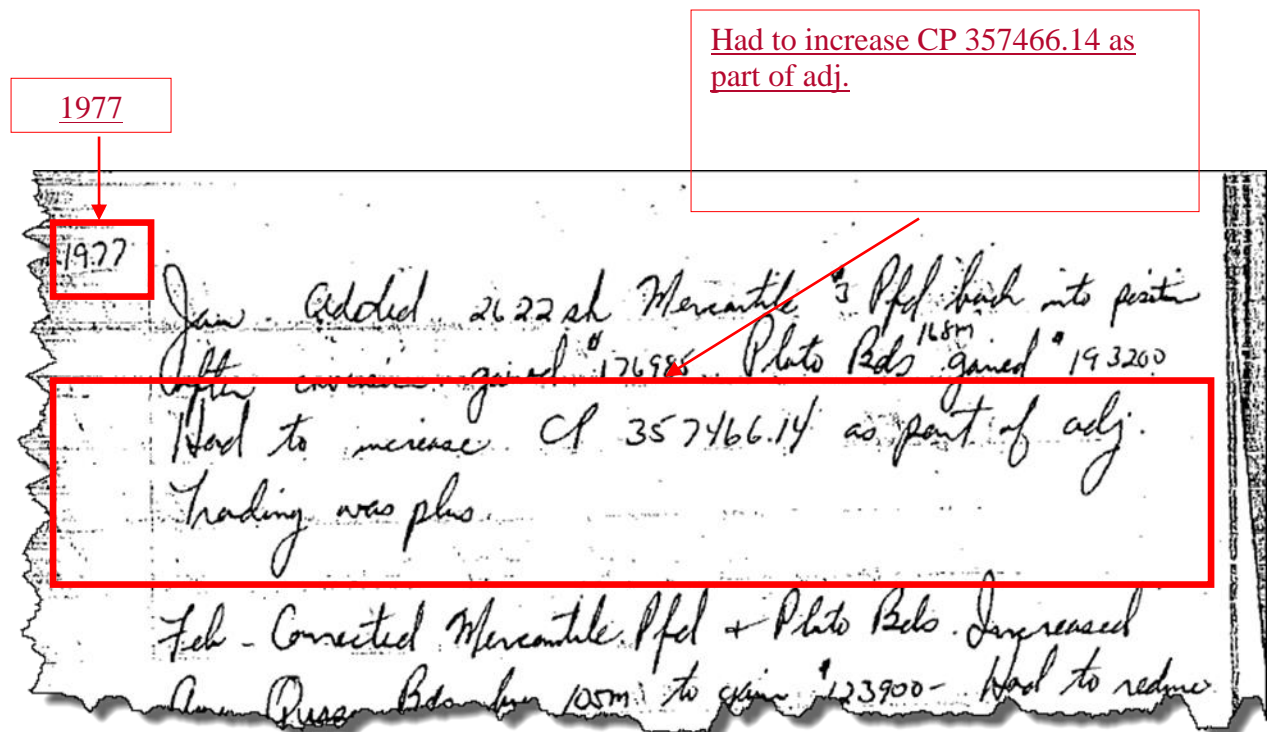 Had to increase CP 357466.14 as
part of adj.
1977
1977
Jan - Added 2622 sh Mercantile $3 Pfd back into position
After conversion gained $176985 Plato Bds 168m gained $193200
Had to increase CP 357466.14 as part of adj.
Trading was plus.
Feb - Corrected Mercantile Pfd + Plato Bds. Increased
Bds by 105m to gain $123900- Had to reduce